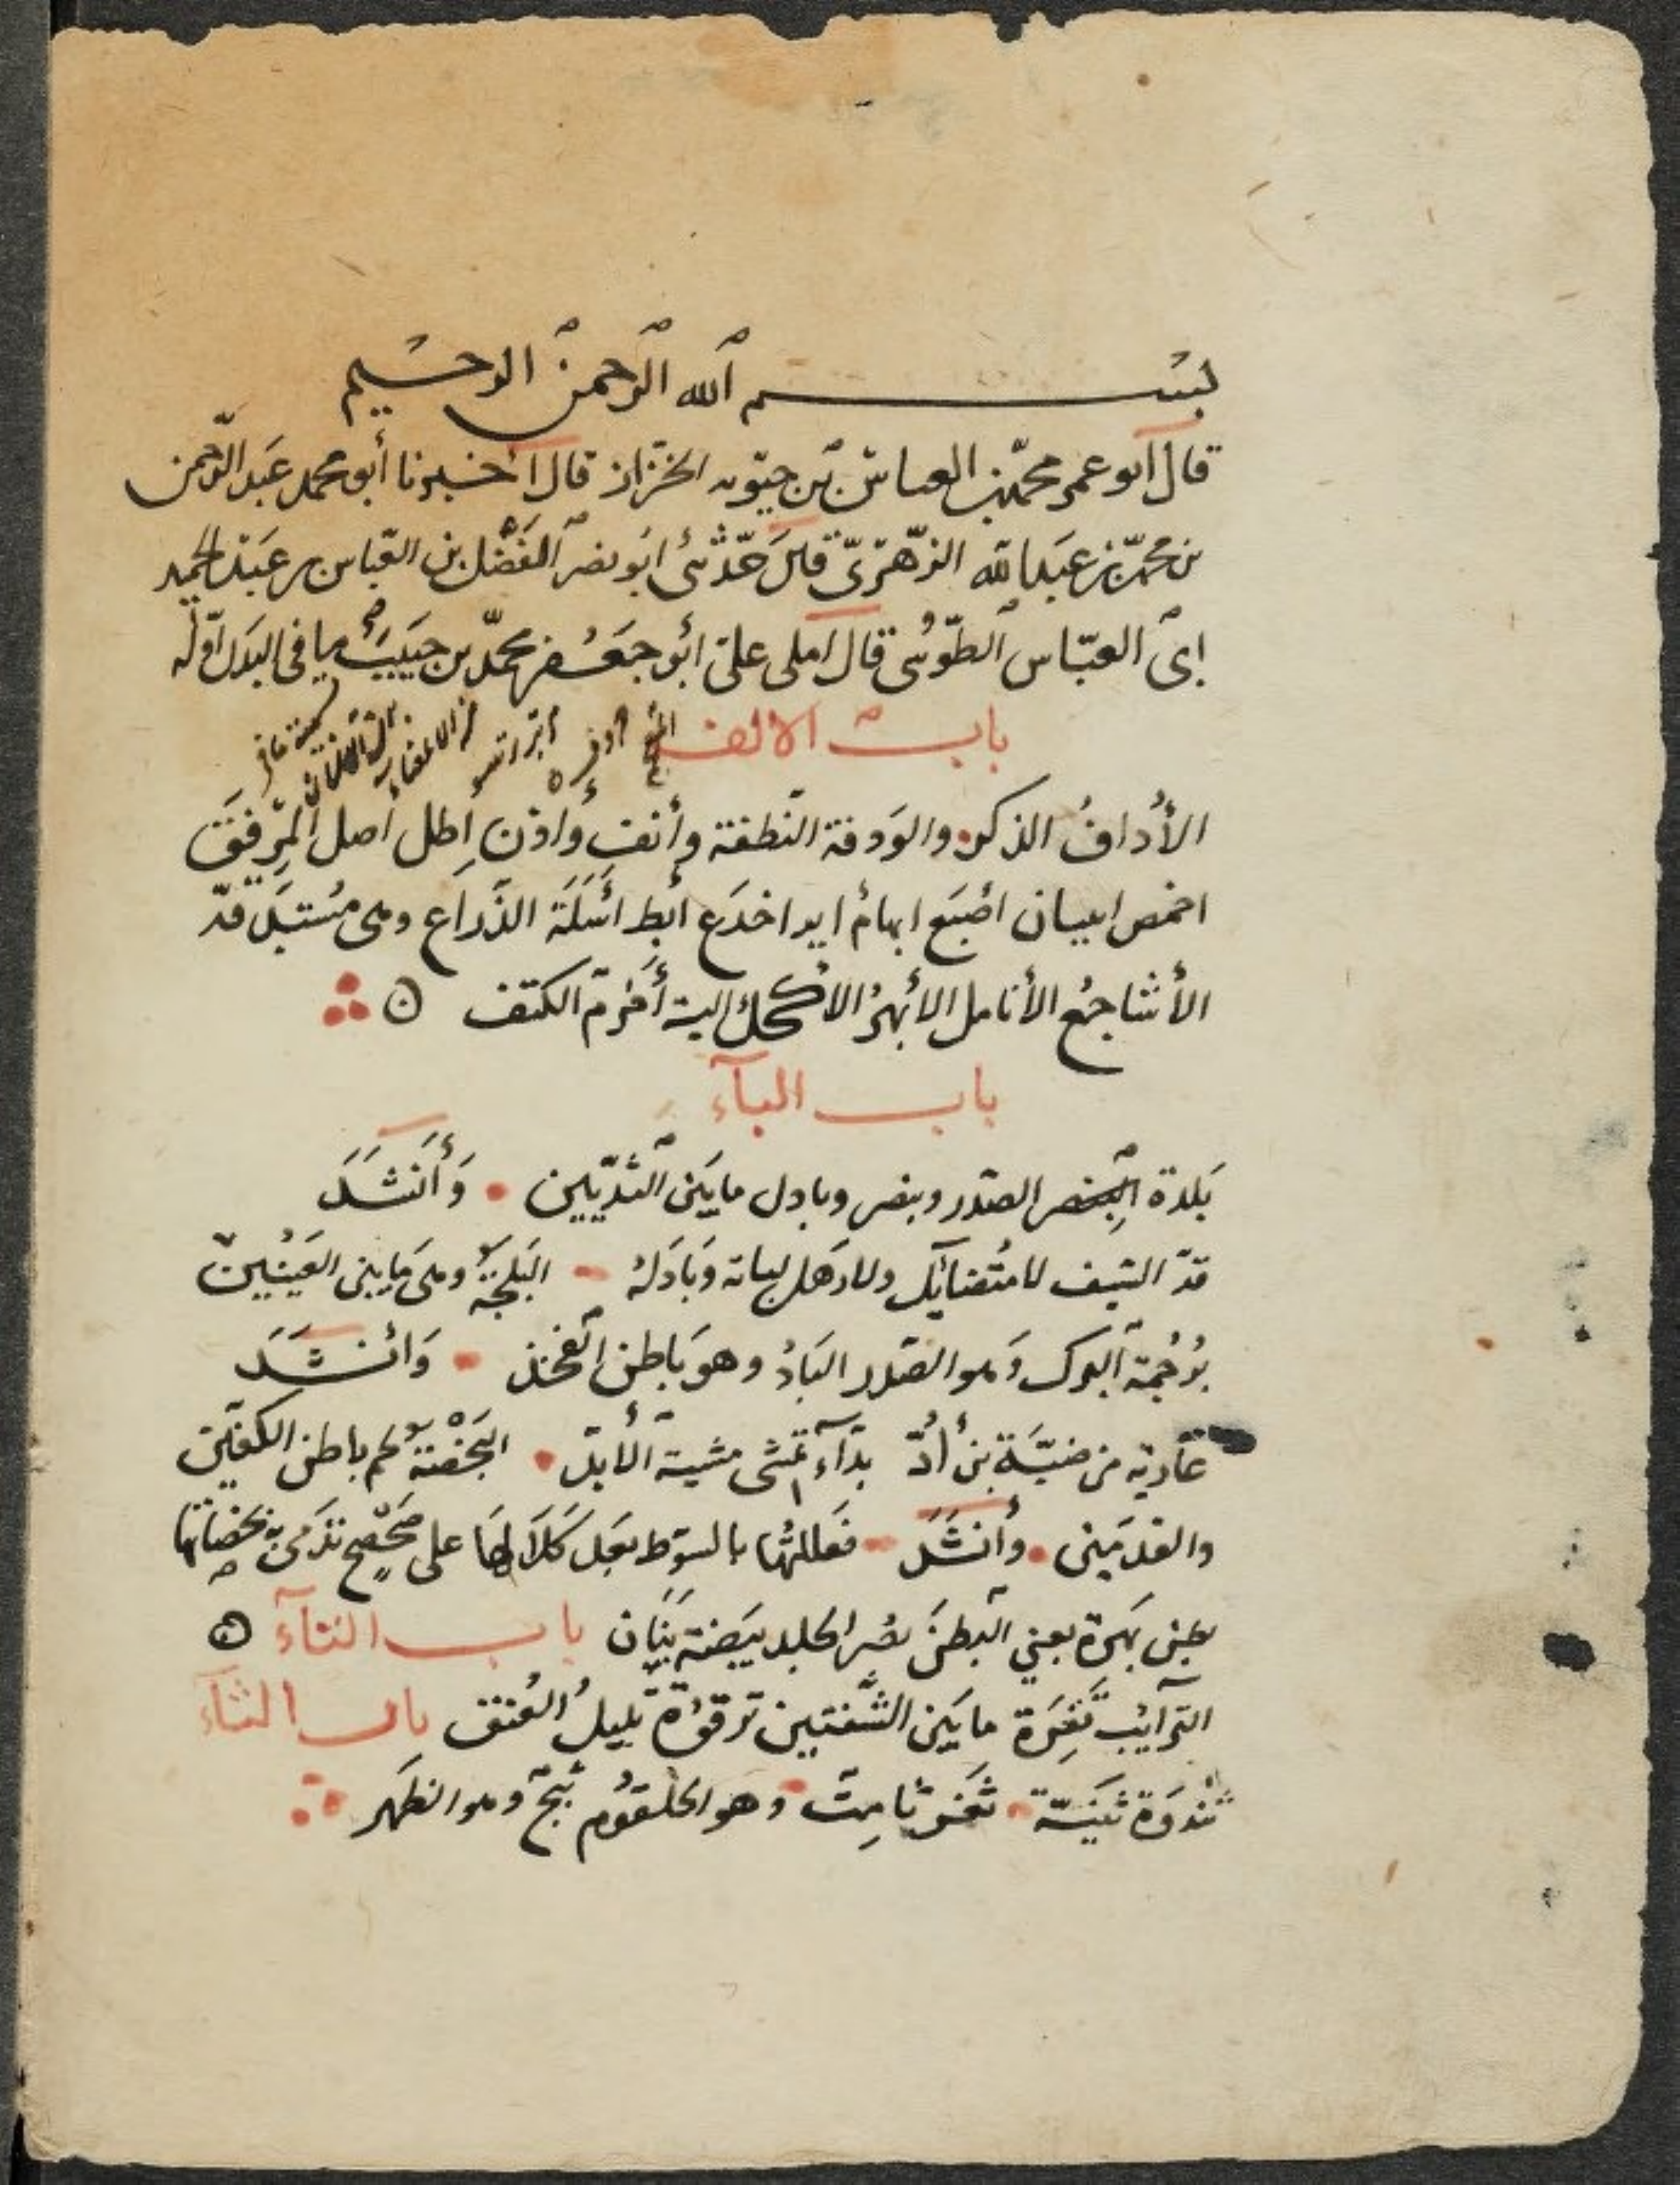 بسم الله الرحمن الرحيم
قال أبو عمر محمد بن العباس بن حيويه الخزاز قال أخبرنا أبو محمد عبد الرحمن
بن محمد بن عبد الله الزهري قال حدثني أبو نصر الفضل بن العباس بن عبد الحميد
ابي العباس الطوسي قال املى علي أبو جعفر محمد بن حبيب ما في البدن اوله
باب الالف
الأداف الذكر والودفة النطفة وأنف وأذن إطل اصل المرفق
اخمص ابيبان اصبع ابهام اير اخدع أبط أسلة الذراع وهي مستدق
الأشاجع الأنامل الأبهر الأكحل الية أخرم الكتف
باب الباء
بلدة البنصر الصدر وبنصر وبادل ما بين الثديين وأنشد
قد السيف لا متضايل ولا رهل لباته وبادله البلجة وهي ما بين العينين
برجمة البرك وهو الصدر الباد وهو باطن الفخذ وأنشد
عادية من ضبة بن أد بداء تمشي مشية الأبد البخصة لحم باطن الكفين
والقدمين وأنشد فعاللتها بالسوط بعد كلالها على صحصح تدمى به بخصاتها
بطن بهرة يعني البطن بصر الجلد بيضة بنان باب التاء
الترايب تفرة ما بين الشفتين ترقوة تليل العنق باب الثاء
ثندوة ثنية ثغر ثامت وهو الحلقوم ثبج وهو الظهر